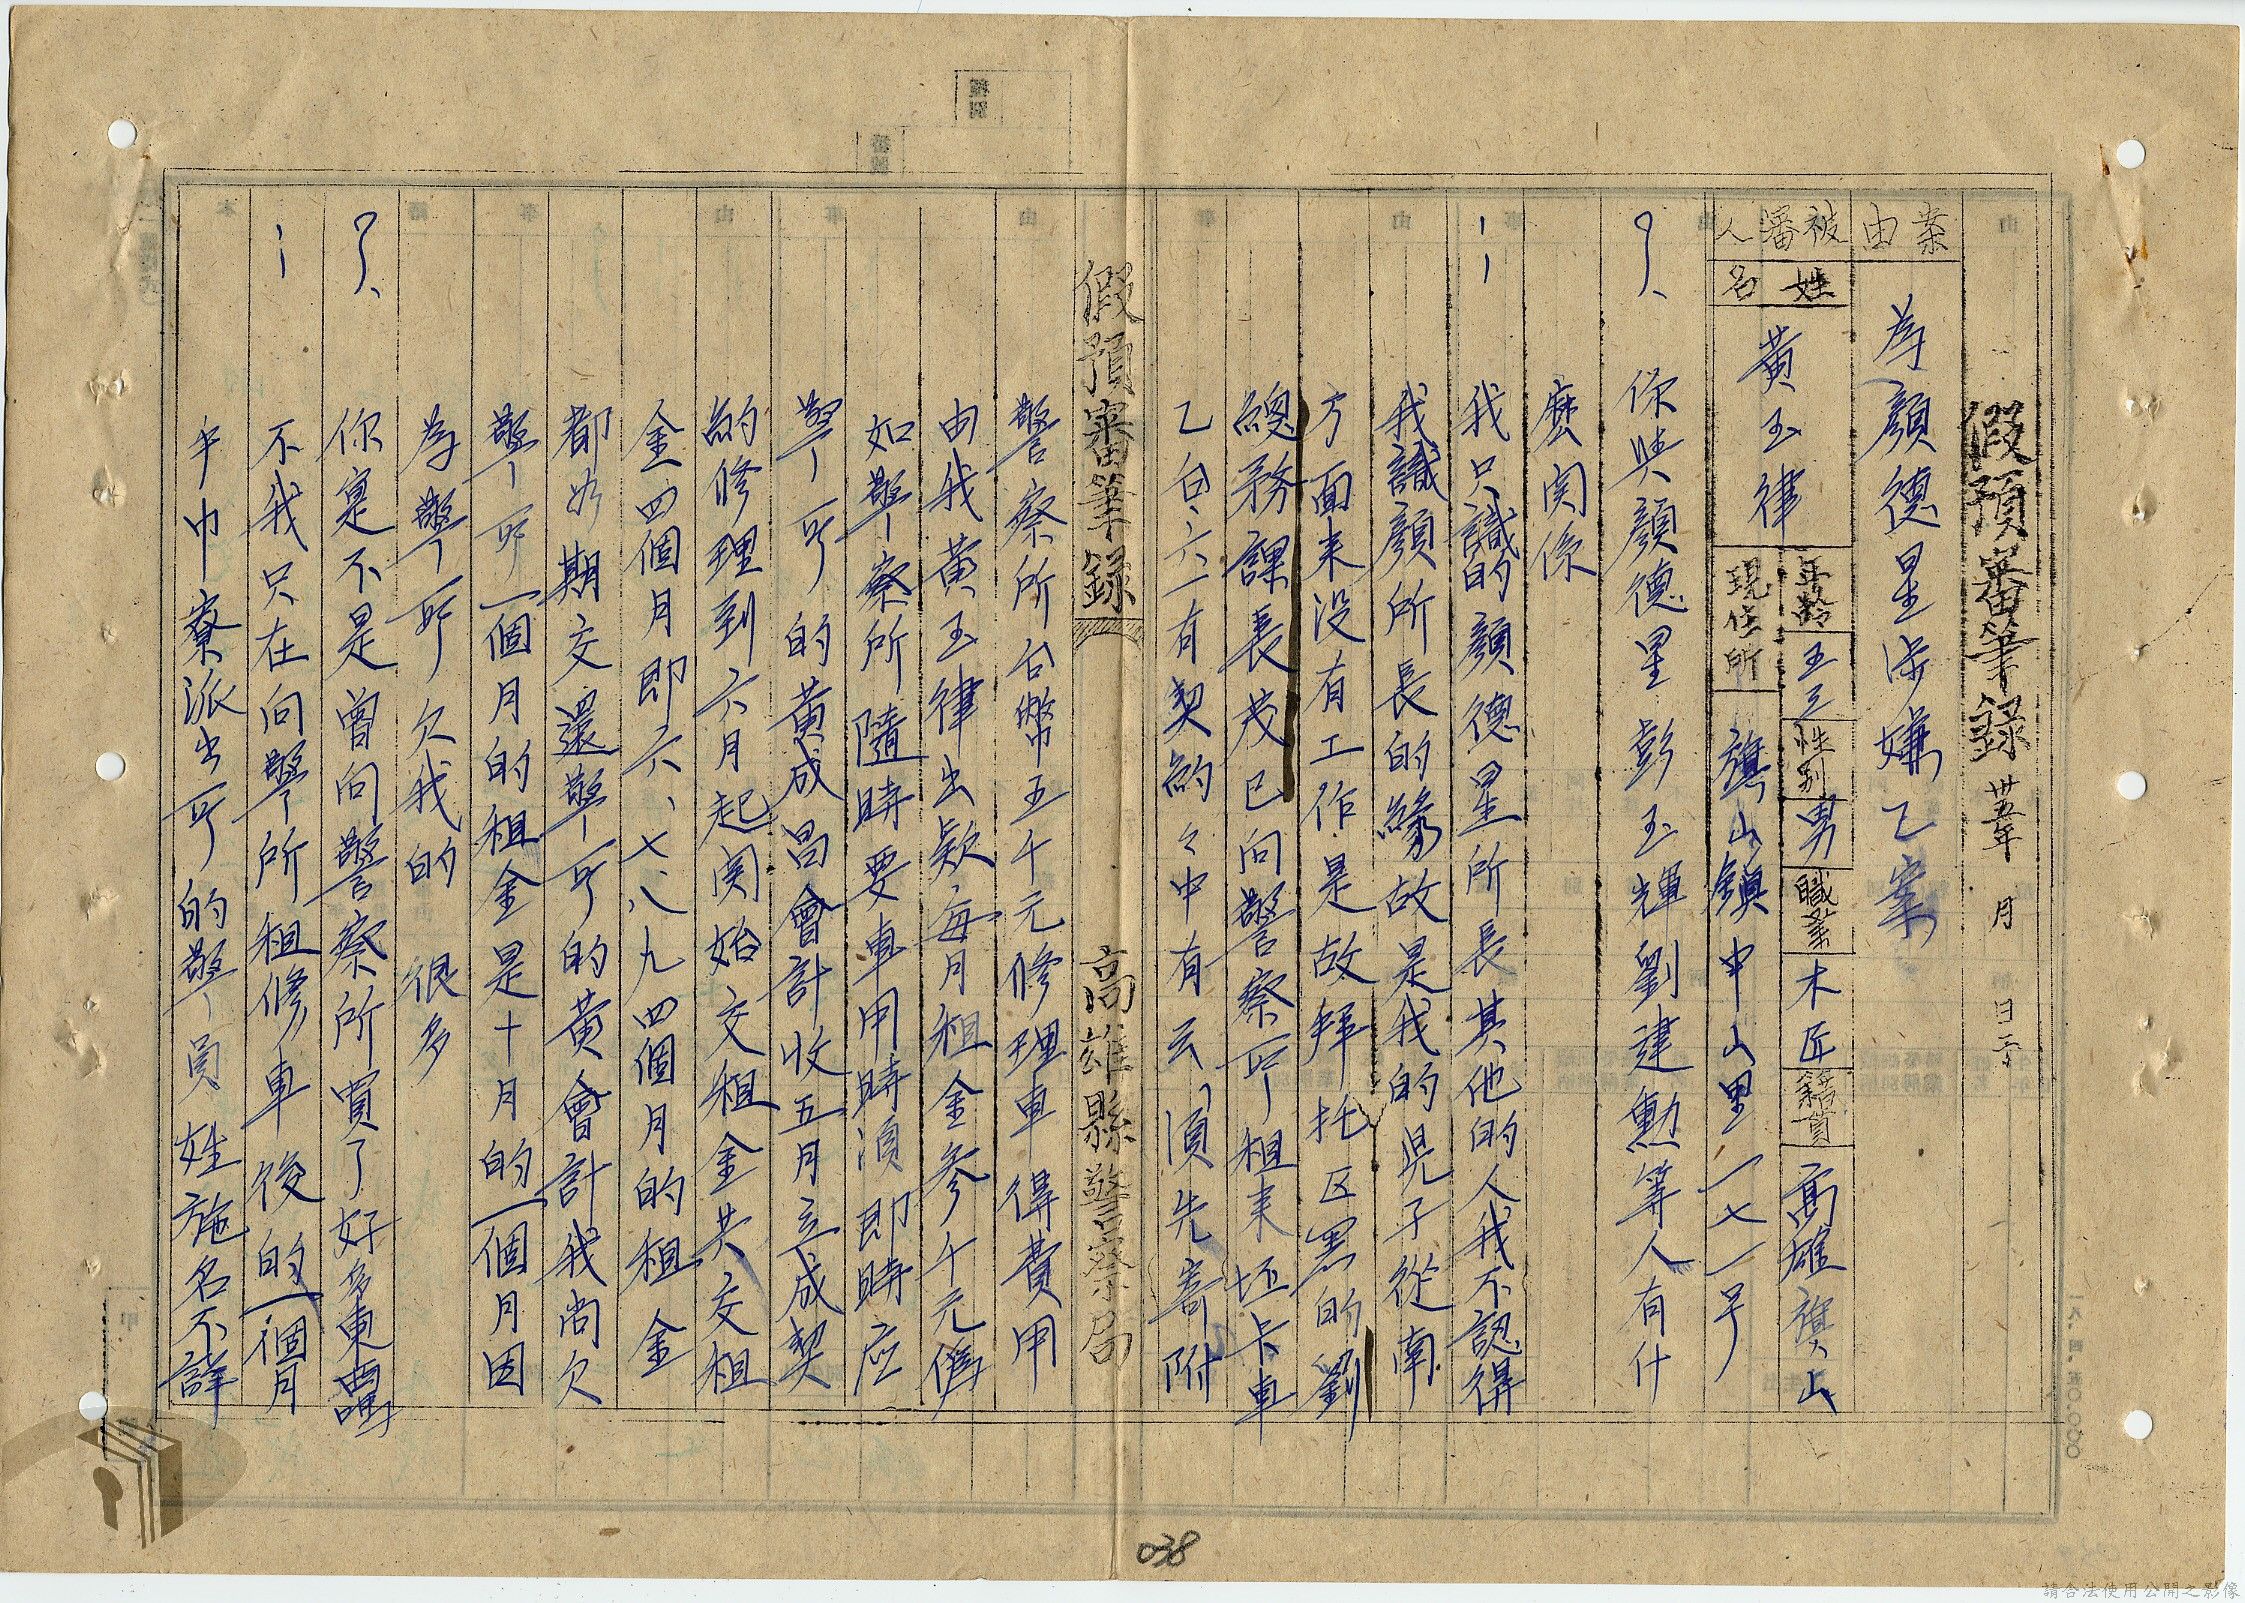 假預審筆錄 卅五年 月 日
案由 為顏德星涉嫌乙案
被審人 姓名 黃玉律 年齡 五三 性別 男 職業 木匠 籍貫 高雄旗山
現住所 旗山鎮中山里一七一号
？、你與顏德星彭玉輝劉建勳等人有什
麼関係
：我只識的顏德星所長其他的人我不認得
我識顏所長的緣故是我的兒子從南
方面来没有工作是故拜托区署的劉
總務課長茂已向警察所租来坯卡車
乙台、六一有契約々中有云，須先寄附
假預審筆錄 高雄縣警察局
警察所台幣五千元修理車得費用
由我黃玉律出欵每月租金參千元俱
如警察所隨時要車用時須即時应
警所的黃成昌會計收五月立成契
約修理到六月起関始交租金共交租
金四個月即六、七、八、九四個月的租金
都如期交還警所的黃會計我尚欠
警所一個月的租金是十月的一個月因
為警所欠我的很多
？、你寔不是曾向警察所買了好多東西嗎
：不我只在向警所租修車後的一個月
手巾寮派出所的警員姓施名不詳
038
請合法使用公開之影像